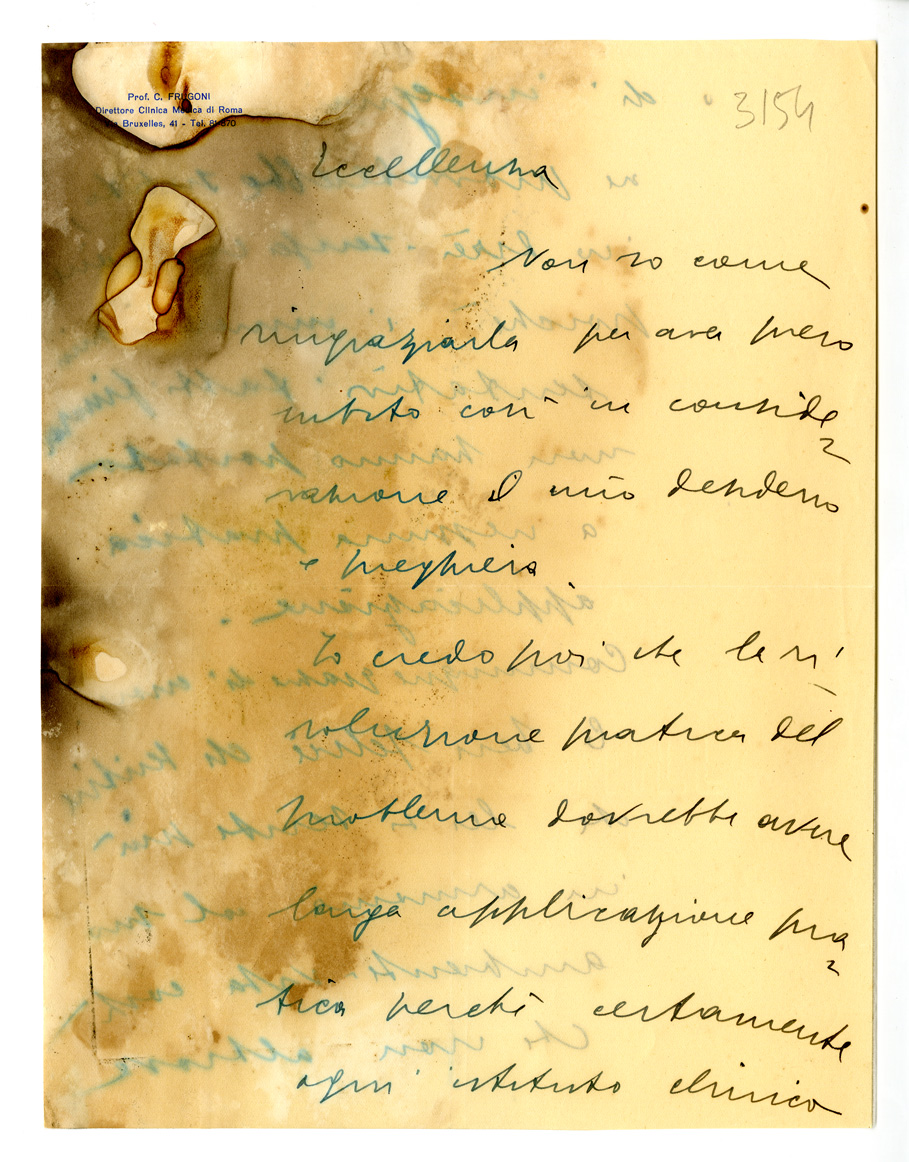 Prof. C. FRUGONI
Direttore Clinica Medica di Roma
Via Bruxelles, 41 - Tel. 81-870
3154
Eccellenza
Non so come
ringraziarla per aver preso
subito così in conside
razione il mio desiderio
e preghiera
Io credo poi che la ri
soluzione pratica del
problema dovrebbe avere
larga applicazione pra
tica perchè certamente
ogni istituto clinico